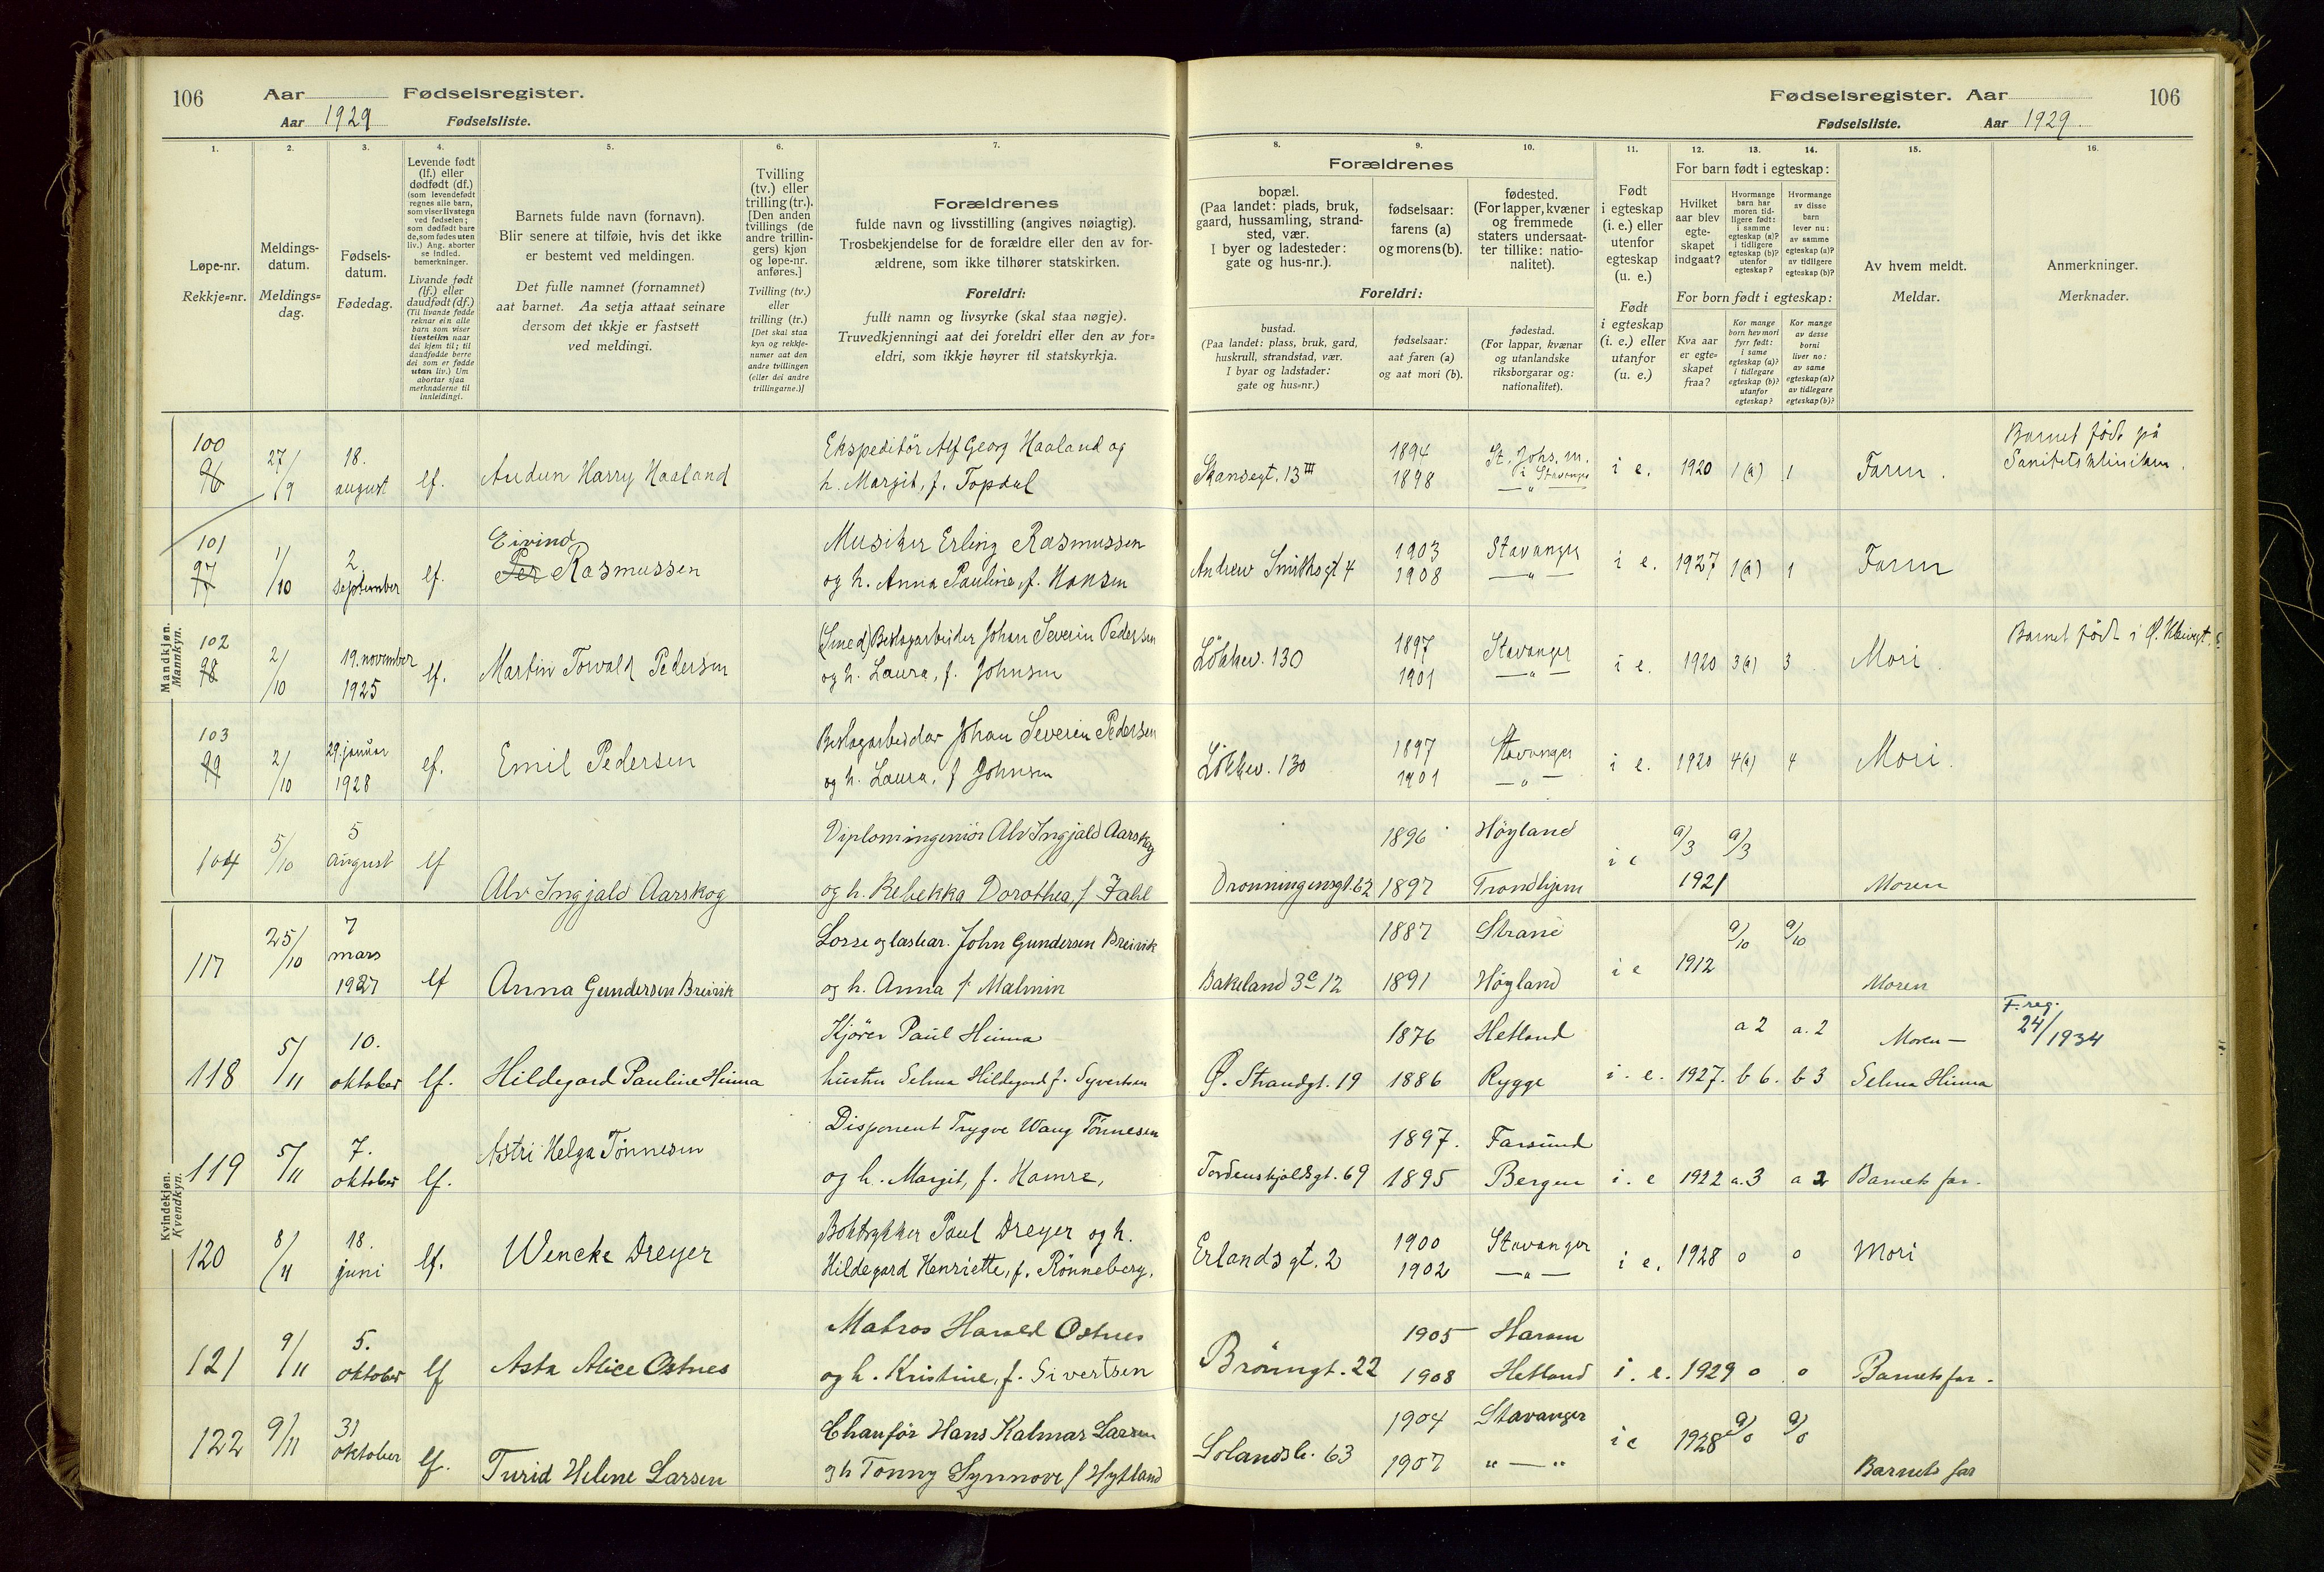 106 Aar Fødselsregister.
Aar 1929 Fødselsliste.
Fødselsregister. Aar 106
Fødselsliste. Aar 1929.
1. 2. 3. 4. 5. 6. 7.
Løpe-nr.
Rekkje=nr.
Meldings-
datum.
Meldings=
dag.
Fødsels-
datum.
Fødedag.
Levende født
(lf.) eller
dødfødt (df.)
(som levendefødt
regnes alle barn,
som viser livstegn
ved fødselen;
som dødfødt bare
de, som fødes uten
liv.) Ang. aborter
se indled.
bemerkninger.
Livande født
(lf.) eller
daudfødt (df.)
(Til livande fødde
reknar ein alle
barn som viser
livsteikn naar
dei kjem til; til
daudfødde berre
dei som er fødde
utan liv.) Um
abortar sjaa
merknaderne til
innleidingi.
Barnets fulde navn (fornavn).
Blir senere at tilføie, hvis det ikke
er bestemt ved meldingen.
Det fulle namnet (fornamnet)
aat barnet. Aa setja attaat seinare
dersom det ikkje er fastsett
ved meldingi.
Tvilling
(tv.) eller
trilling (tr.).
[Den anden
tvillings (de
andre trillin-
gers) kjøn
og løpe-nr.
anføres.]
Tvilling (tv.)
eller
trilling (tr.)
[Det skal staa
kyn og rekkje-
numer aat den
andre tvillingen
(eller dei andre
trillingarne.)]
Forældrenes
fulde navn og livsstilling (angives nøiagtig).
Trosbekjendelse for de forældre eller den av for-
ældrene, som ikke tilhører statskirken.
Foreldri:
fullt namn og livsyrke (skal staa nøgje).
Truvedkjenningi aat dei foreldri eller den av for=
eldri, som ikkje høyrer til statskyrkja.
8. 9. 10. 11. 12. 13. 14. 15. 16.
Forældrenes
bopæl.
(Paa landet: plads, bruk,
gaard, hussamling, strand-
sted, vær.
I byer og ladesteder:
gate og hus-nr.).
fødselsaar:
farens (a)
og morens (b).
fødested.
(For lapper, kvæner
og fremmede
staters undersaat-
ter tillike: natio-
nalitet).
Foreldri:
bustad.
(Paa landet: plass, bruk, gard,
huskrull, strandstad, vær.
I byar og ladstader:
gate og hus=nr.)
fødselsaar:
aat faren (a)
og aat mori (b).
fødestad.
(For lappar, kvænar
og utanlandske
riksborgarar og:
nationalitet).
Født
i egteskap
(i. e.) eller
utenfor
egteskap
(u. e.)
Født
i egteskap
(i. e.) eller
utanfor
(u. e.)
For barn født i egteskap:
Hvilket
aar blev
egte-
skapet
indgaat?
Hvormange
barn har
moren tid-
ligere født:
i samme
egteskap (a)?
i tidligere
egteskap (b)?
utenfor
egteskap?
Hvormange
av disse
barn
lever nu:
av samme
egteskap (a)?
av tidligere
egteskap (b)?
For born født i egteskap:
Kva aar
er egte=
skapet
fraa?
Kor mange
born hev mori
fyrr født:
i same
egteskap (a)?
i tidlegare
egteskap (b)?
utanfor
egteskap?
Kor mange
av desse
borni
liver no:
av same
egteskap (a)?
av tidlegare
egteskap (b)?
Av hvem meldt.
Meldar.
Anmerkninger.
Merknader.
Mandkjøn.
Mannkyn.
100 96 27/9 18. august lf. Audun Harry Haaland
Ekspeditör Alf Georg Haaland og
h. Margit, f. Topdal
Skansegt. 13 III 1894 1898 St. Johs. m. i Stavanger — " — i e. 1920 1 (a) 1 Faren. Barnet född på Sanitetsklinikken.
101 97 1/10 2 september lf. Eivind Per Rasmussen
Musiker Erling Rasmussen
og h. Anna Pauline, f. Hansen
Andrew Smithsgt 4 1903 1908 Stavanger — " — i e. 1927 1(a) 1 Faren
102 98 2/10 19. november 1925 lf. Martin Torvald Pedersen
(Smed) Beslagarbeider Johan Severin Pedersen
og h. Laura, f. Johnsen
Lökkev. 130 1897 1901 Stavanger — " — i e. 1920 3(a) 3 Mori. Barnet född i Ø.
103 99 2/10 29. januar 1928 lf. Emil Pedersen
Beslagarbeidar Johan Severin Pedersen
og h. Laura, f Johnsen
Lökkev. 130 1897 1901 Stavanger — " — i e. 1920 4(a) 4 Mori.
104 5/10 5 august lf Alv Ingjald Aarskog
Diplomingeniör Alv Ingjald Aarskog
og h. Rebekka Dorothea, f Fahl
Dronningensgt. 62 1896 1897 Höyland Trondhjem i e 1921 a/3 a/3 Moren
Kvindekjøn.
Kvendkyn.
117 25/10 7 mars 1927 lf Anna Gundersen Breivik
Losse og lastear. John Gundersen Breivik
og h. Anna f. Malmin
Bakeland 3c 12 1887 1891 Strand Höyland i e 1912 a/10 a/10 Moren
118 5/11 10. oktober lf. Hildegard Pauline Hinna
Kjörer Paul Hinna
hustru Selma Hildegard f. Syvertsen
Ø. Strandgt. 19 1876 1886 Hetland Rygge i. e. 1927. a 2 b 6. a. 2 b 3 Moren — Selma Hinna F. reg. 24/1934
119 5/11 7. oktober lf. Astri Helga Tönnesen
Disponent Trygve Wang Tönnesen
og h. Margit, f. Hamre,
Tordenskjoldsgt. 69 1897. 1895 Farsund Bergen i. e 1922 a. 3 a 2 Barnets far.
120 8/11 18. juni lf. Wencke Dreyer
Boktrykker Paul Dreyer og h.
Hildegard Henriette, f. Rönneberg.
Erlandsgt. 2 1900 1902 Stavanger — " — i e. 1928 0 0 Mori
121 9/11 5. oktober lf Asta Alice Ostnes
Matros Harald Ostnes
og h. Kristine, f. Sivertsen
Brönngt. 22 1905 1908 Haram Hetland i. e. 1929 0 0 Barnets far.
122 9/11 31 oktober lf. Turid Helene Larsen
Chauför Hans Kalmar Larsen
og h Tonny Synnove f Hytland
Solandsb. 63 1904 1907 Stavanger " — " i e 1928 a/0 a/0 Barnets far